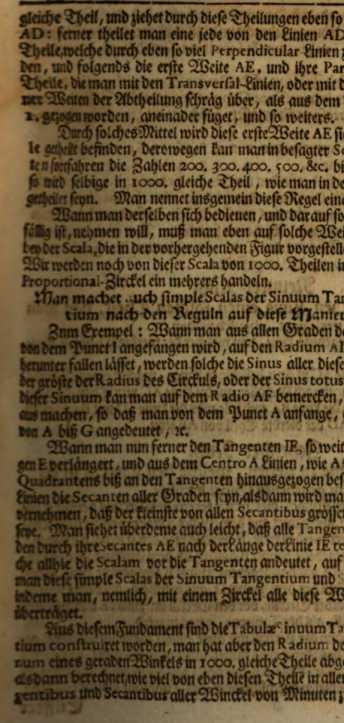 gleiche Theil, und ziehet durch diese Theilungen eben so
AD: ferner theilet man eine jede von den Linien AD
Theile, welche durch eben so viel Perpendicular Linien
den, und folgends die erste Weite AE, und ihre Par
Theile, die man mit den Transversal-Linien, oder mit d
Weiten der Abtheilung schräg über, als aus dem
1. gezogen worden, aneinader füget, und so weiters.
Durch solches Mittel wird diese erste Weite AE
le getheilt befinden, derowegen kan man in besagter
fortfahren die Zahlen 200. 300. 400. 500. &c. bi
so wird selbige in 1000. gleiche Theil, wie man in de
getheilet seyn. Man nennet insgemein diese Regel eine
Wann man derselben sich bedienen, und darauf so
fällig ist, nehmen will, muß man eben auf solche Wei
bey der Scala, die in der vorhergehenden Figur vorgestell
Wir werden noch von dieser Scala von 1000. Theilen i
Proportional-Zirckel ein mehrers handeln.
Man machet auch simple Scalas der Sinuum Tan
tium nach den Reguln auf diese Manier
Zum Exempel: Wann man aus allen Graden de
von dem Punct I angefangen wird, auf den Radium A
herunter fallen lässet, werden solche die Sinus aller diese
der gröste der Radius des Circkuls, oder der Sinus totus
dieser Sinuum kan man auf dem Radio AF bemercken,
aus machen, so daß man von dem Punct A anfange,
von A biß G angedeutet, ꝛc.
Wann man nun ferner den Tangenten IE, so weit
gen E verlängert, und aus dem Centro A Linien, wie A
Quadrantens biß an den Tangenten hinausgezogen bes
Linien die Secanten aller Graden seyn, alsdann wird ma
vernehmen, daß der kleinste von allen Secantibus grösse
seye. Man siehet überdeme auch leicht, daß alle Tangen
den durch ihre Secantes AE nach der Länge der Linie IE
che allhie die Scalam vor die Tangenten andeutet, auf
man diese simple Scalas der Sinuum Tangentium und
indeme man, nemlich, mit einem Zirckel alle diese W
überträget.
Aus diesem Fundament sind die Tabulæ Sinuum Ta
tium construirt worden, man hat aber den Radium de
num eines geraden Winkels in 1000. gleiche Theile abg
alsdann berechnet, wie viel von eben diesen Theile in allen
gentibus und Secantibus aller Winckel von Minuten